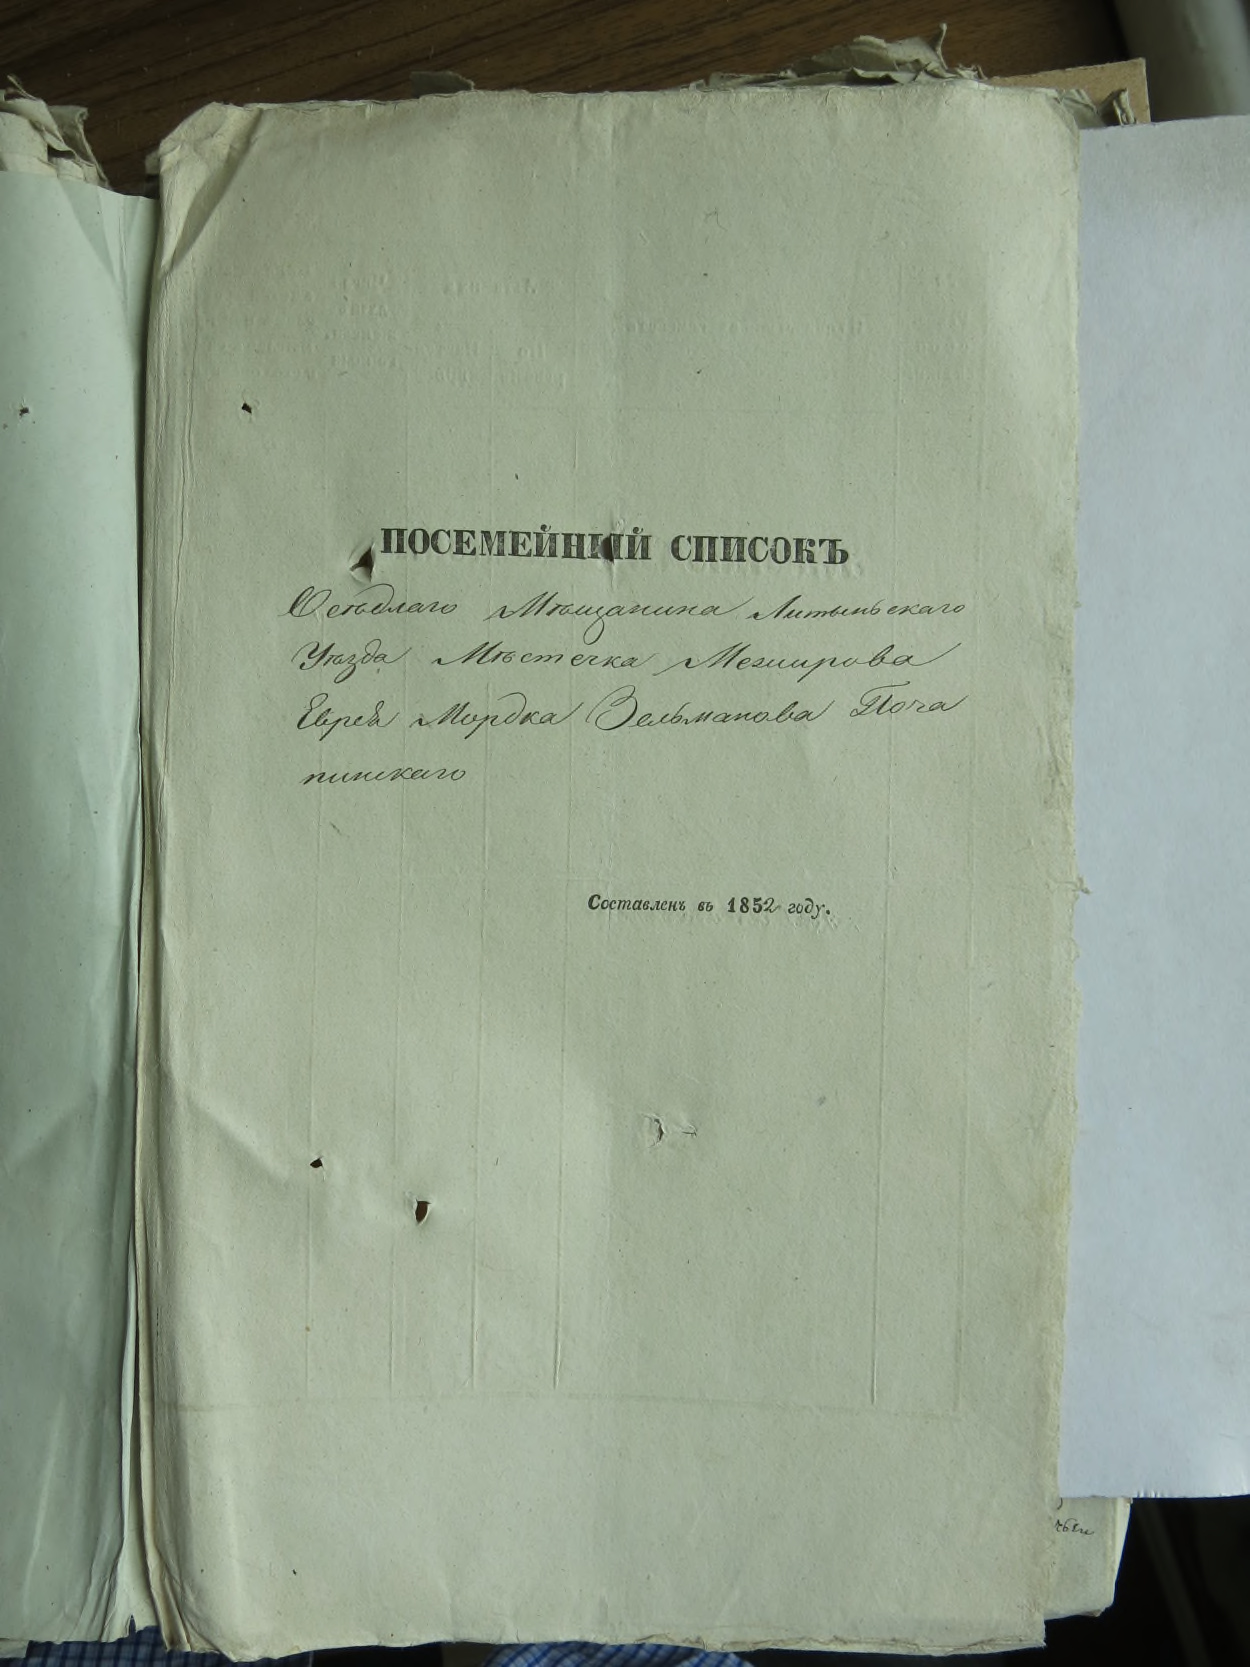 ПОСЕМЕЙНЫЙ СПИСОКЪ
Осѣдлаго Мѣщанина Литыньскаго
Уѣзда Мѣстечка Межирова
Еврея Мордка Зельманова Поча
пинскаго
Составленъ въ 1852 году.